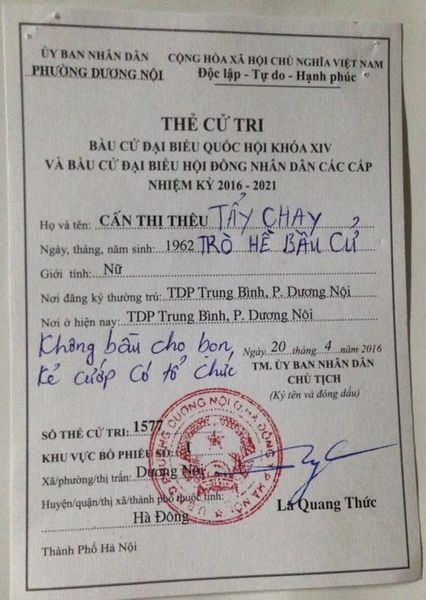 ỦY BAN NHÂN DÂN
PHƯỜNG DƯƠNG NỘI
CỘNG HÒA XÃ HỘI CHỦ NGHĨA VIỆT NAM
Độc lập - Tự do - Hạnh phúc
THẺ CỬ TRI
BẦU CỬ ĐẠI BIỂU QUỐC HỘI KHÓA XIV
VÀ BẦU CỬ ĐẠI BIỂU HỘI ĐỒNG NHÂN DÂN CÁC CẤP
NHIỆM KỲ 2016 - 2021
Họ và tên: CẤN THỊ THÊU TẨY CHAY
Ngày, tháng, năm sinh: 1962 TRÒ HỀ BẦU CỬ
Giới tính: Nữ
Nơi đăng ký thường trú: TDP Trung Bình, P. Dương Nội
Nơi ở hiện nay: TDP Trung Bình, P. Dương Nội
Không bầu cho bọn,
kẻ cướp Có tổ chức
Ngày 20 tháng 4 năm 2016
TM. ỦY BAN NHÂN DÂN
CHỦ TỊCH
(Ký tên và đóng dấu)
SỐ THẺ CỬ TRI: 1577
KHU VỰC BỎ PHIẾU SỐ:
Xã/phường/thị trấn: Dương Nội
Huyện/quận/thị xã/thành phố thuộc tỉnh:
Hà Đông
Lã Quang Thức
Thành Phố Hà Nội